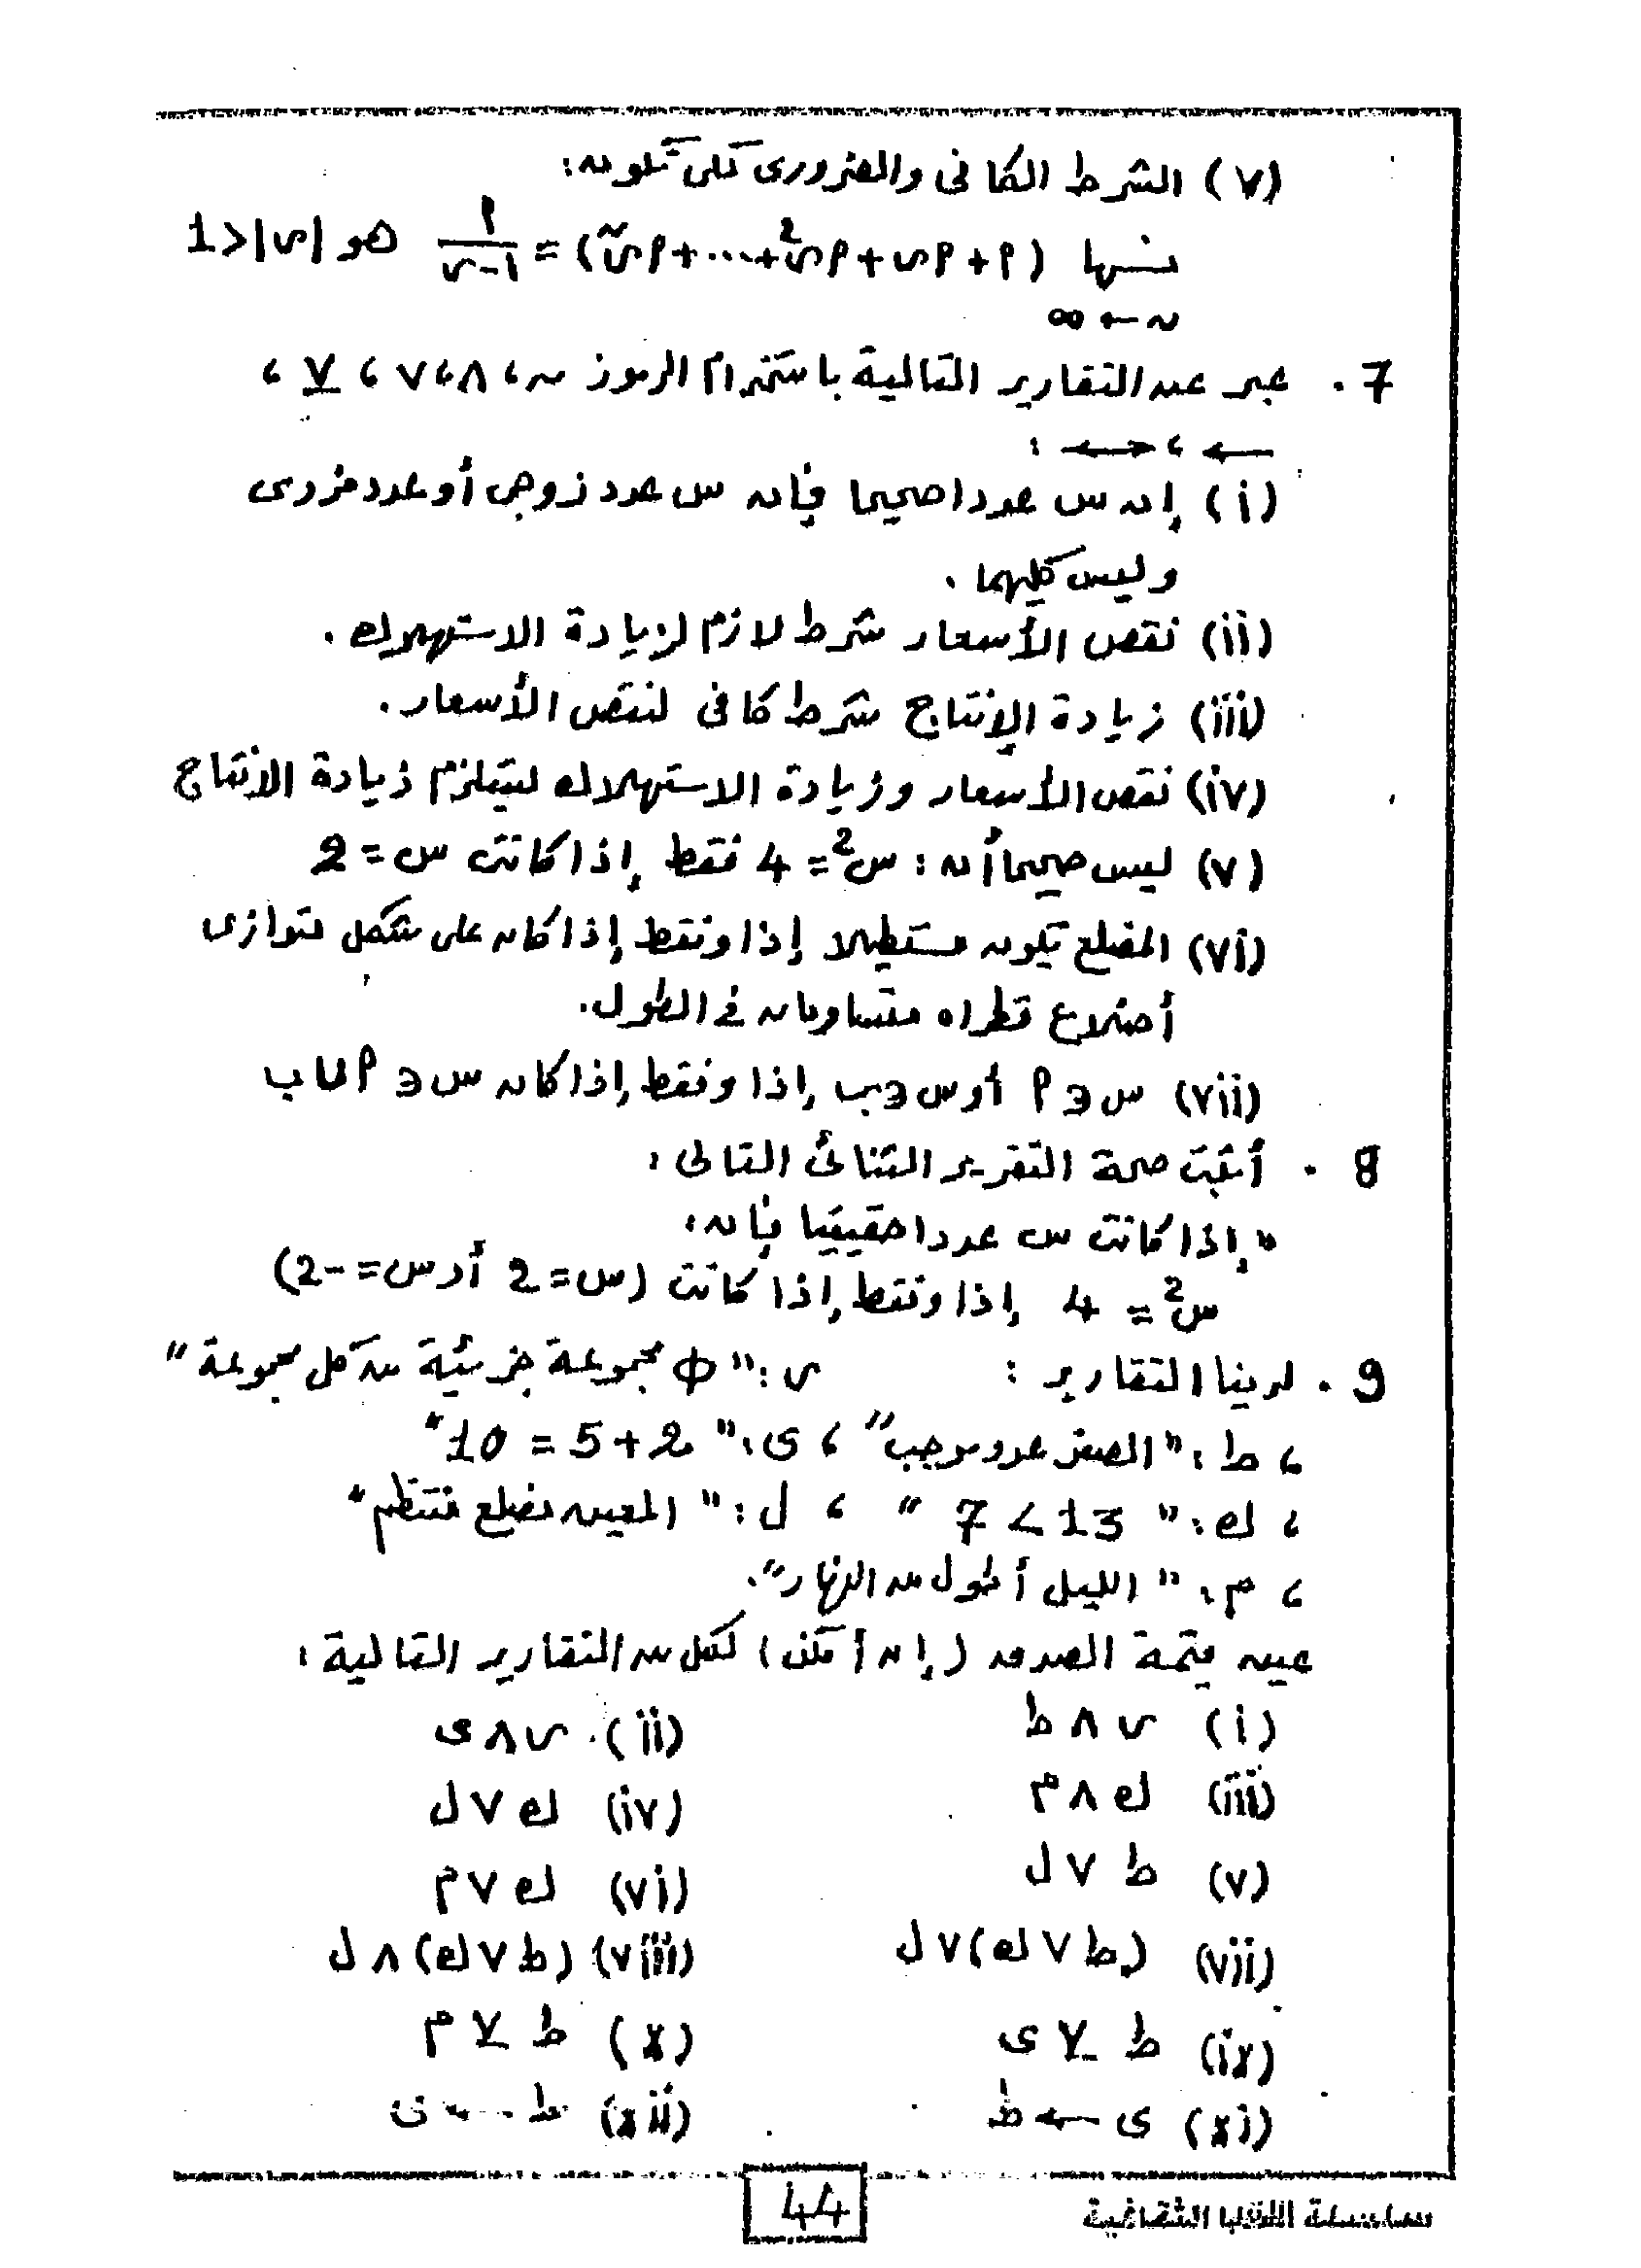 (v) الشرط الكافى والضرورى لكى تكون:
نهــا (أ + أر + أر² + ... + أرⁿ) = أ / (1 - ر) هو |ر| < 1
ن ← ∞
7. عبر عن التقارير التالية باستخدام الرموز ~، ∧، ∨، ⊻،
←، ↔ :
(i) إن س عددا صحيحا فإن س عدد زوجى أو عدد فردى
وليس كليهما.
(ii) نقص الأسعار شرط لازم لزيادة الاستهلاك.
(iii) زيادة الإنتاج شرط كافى لنقص الأسعار.
(iv) نقص الأسعار وزيادة الاستهلاك ليتلزم زيادة الانتاج
(v) ليس صحيحا أن: س² = 4 فقط إذا كانت س = 2
(vi) المضلع يكون مستطيلا إذا وفقط إذا كان على شكل متوازى
أضلاع قطراه متساويان فى الطول.
(vii) س ∈ أ أو س ∈ ب إذا وفقط إذا كان س ∈ أ ∪ ب
8. أثبت صحة التقرير الثنائى التالى:
"إذا كانت س عددا حقيقيا فإن:
س² = 4 إذا وفقط إذا كانت (س = 2 أو س = -2)
9. لدينا التقارير: ر: "φ مجموعة جزئية من كل مجموعة"
، ط: "الصفر عدد موجب" ، ى: "2 + 5 = 10"
، ك: "13 > 7" ، ل: "المعين مضلع منتظم"
، م: "الليل أطول من النهار".
عين قيمة الصدق (إن أمكن) لكل من التقارير التالية:
(i) ر ∧ ط (ii) ر ∧ ى
(iii) ك ∧ م (iv) ك ∨ ل
(v) ط ∨ ل (vi) ك ∨ م
(vii) (ط ∨ ك) ∨ ل (viii) (ط ∨ ك) ∧ ل
(ix) ط ⊻ ى (x) ط ⊻ م
(xi) ى ← ط (xii) ط ← ى
44
سلسلة الثقافية